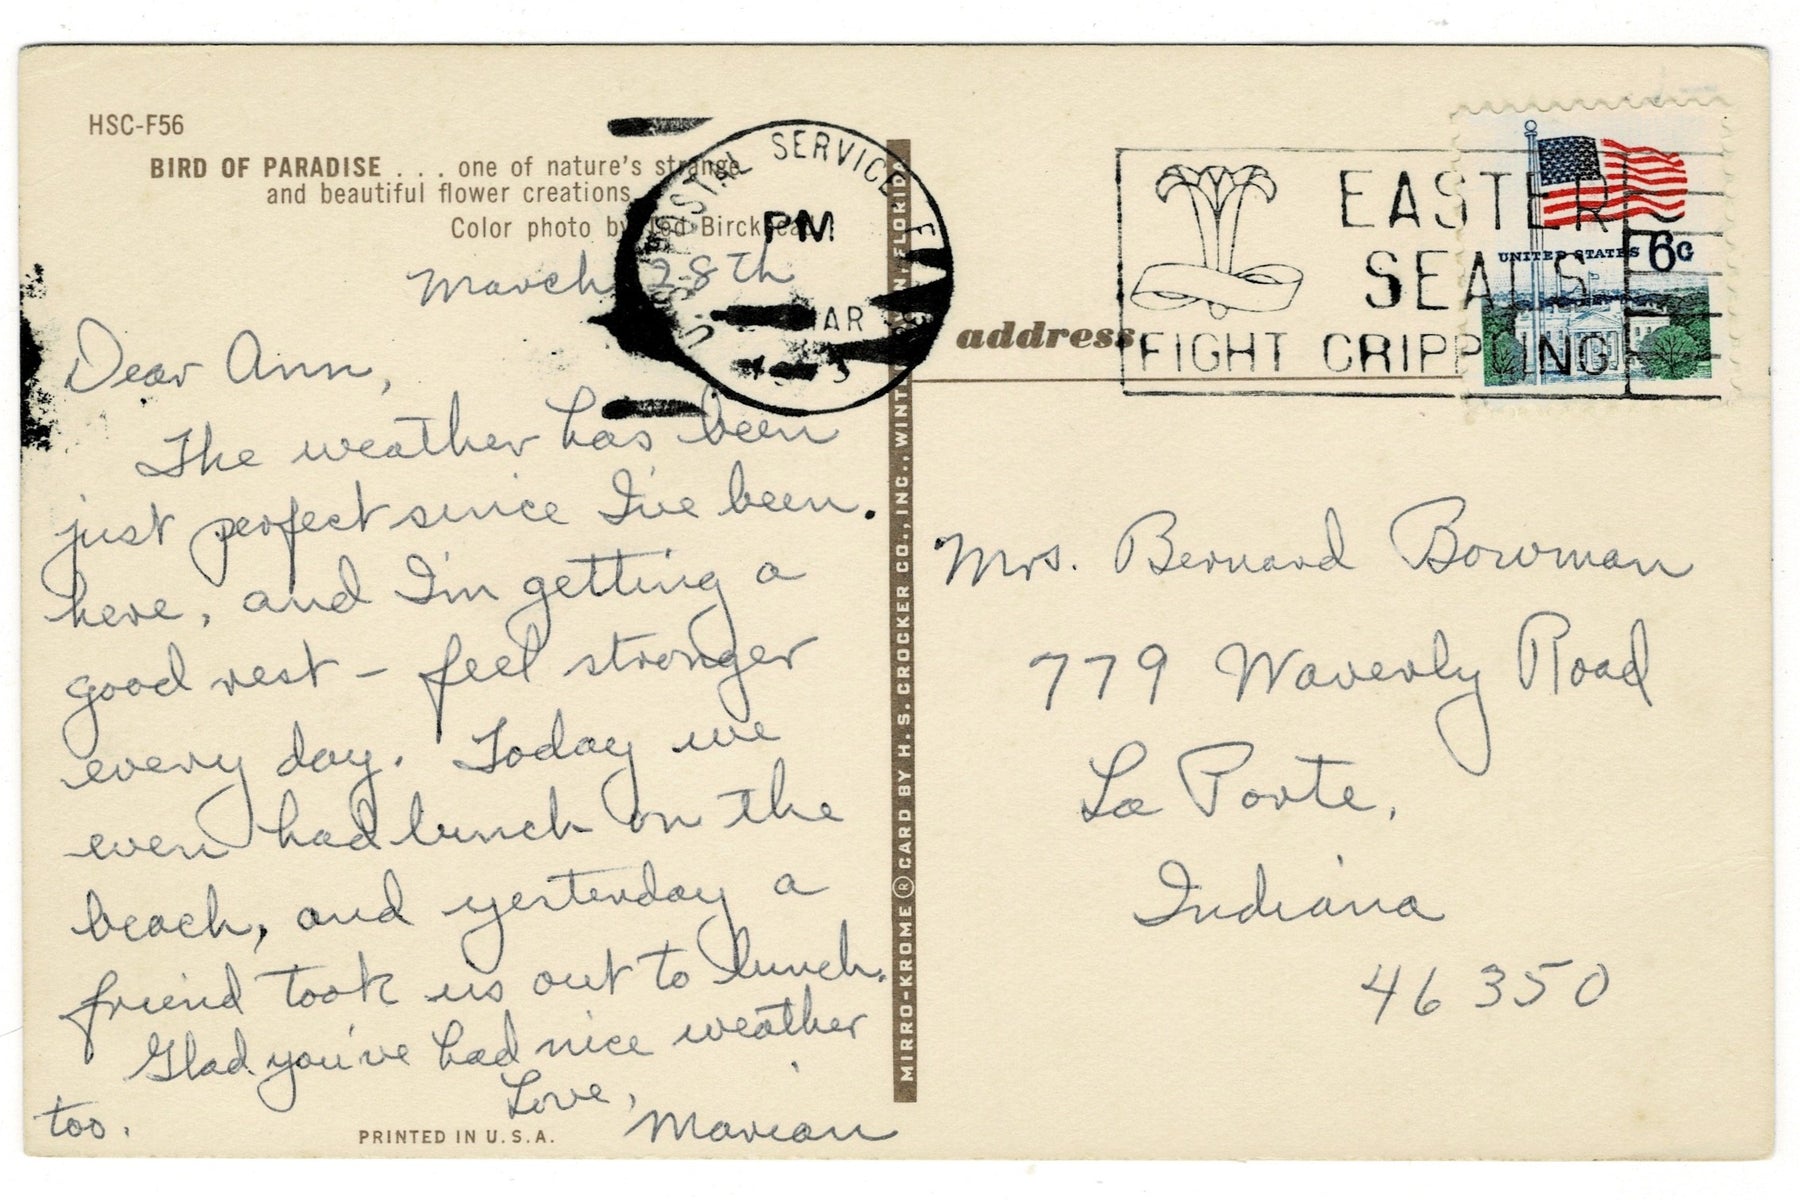 HSC-F56
BIRD OF PARADISE . . . one of nature's strange
and beautiful flower creations.
Color photo by Ted Birckhead
U.S. POSTAL SERVICE F
PM
MAR
EASTER
SEALS
FIGHT CRIPPLING
UNITED STATES 6¢
address
March 28th
Dear Ann,
The weather has been
just perfect since I've been.
here, and I'm getting a
good rest - feel stronger
every day. Today we
even had lunch on the
beach, and yesterday a
friend took us out to lunch.
Glad you've had nice weather
too.
Love,
Marian
PRINTED IN U.S.A.
MIRRO-KROME ® CARD BY H. S. CROCKER CO., INC., WINT N, FLORID
Mrs. Bernard Bowman
779 Waverly Road
La Porte,
Indiana
46350